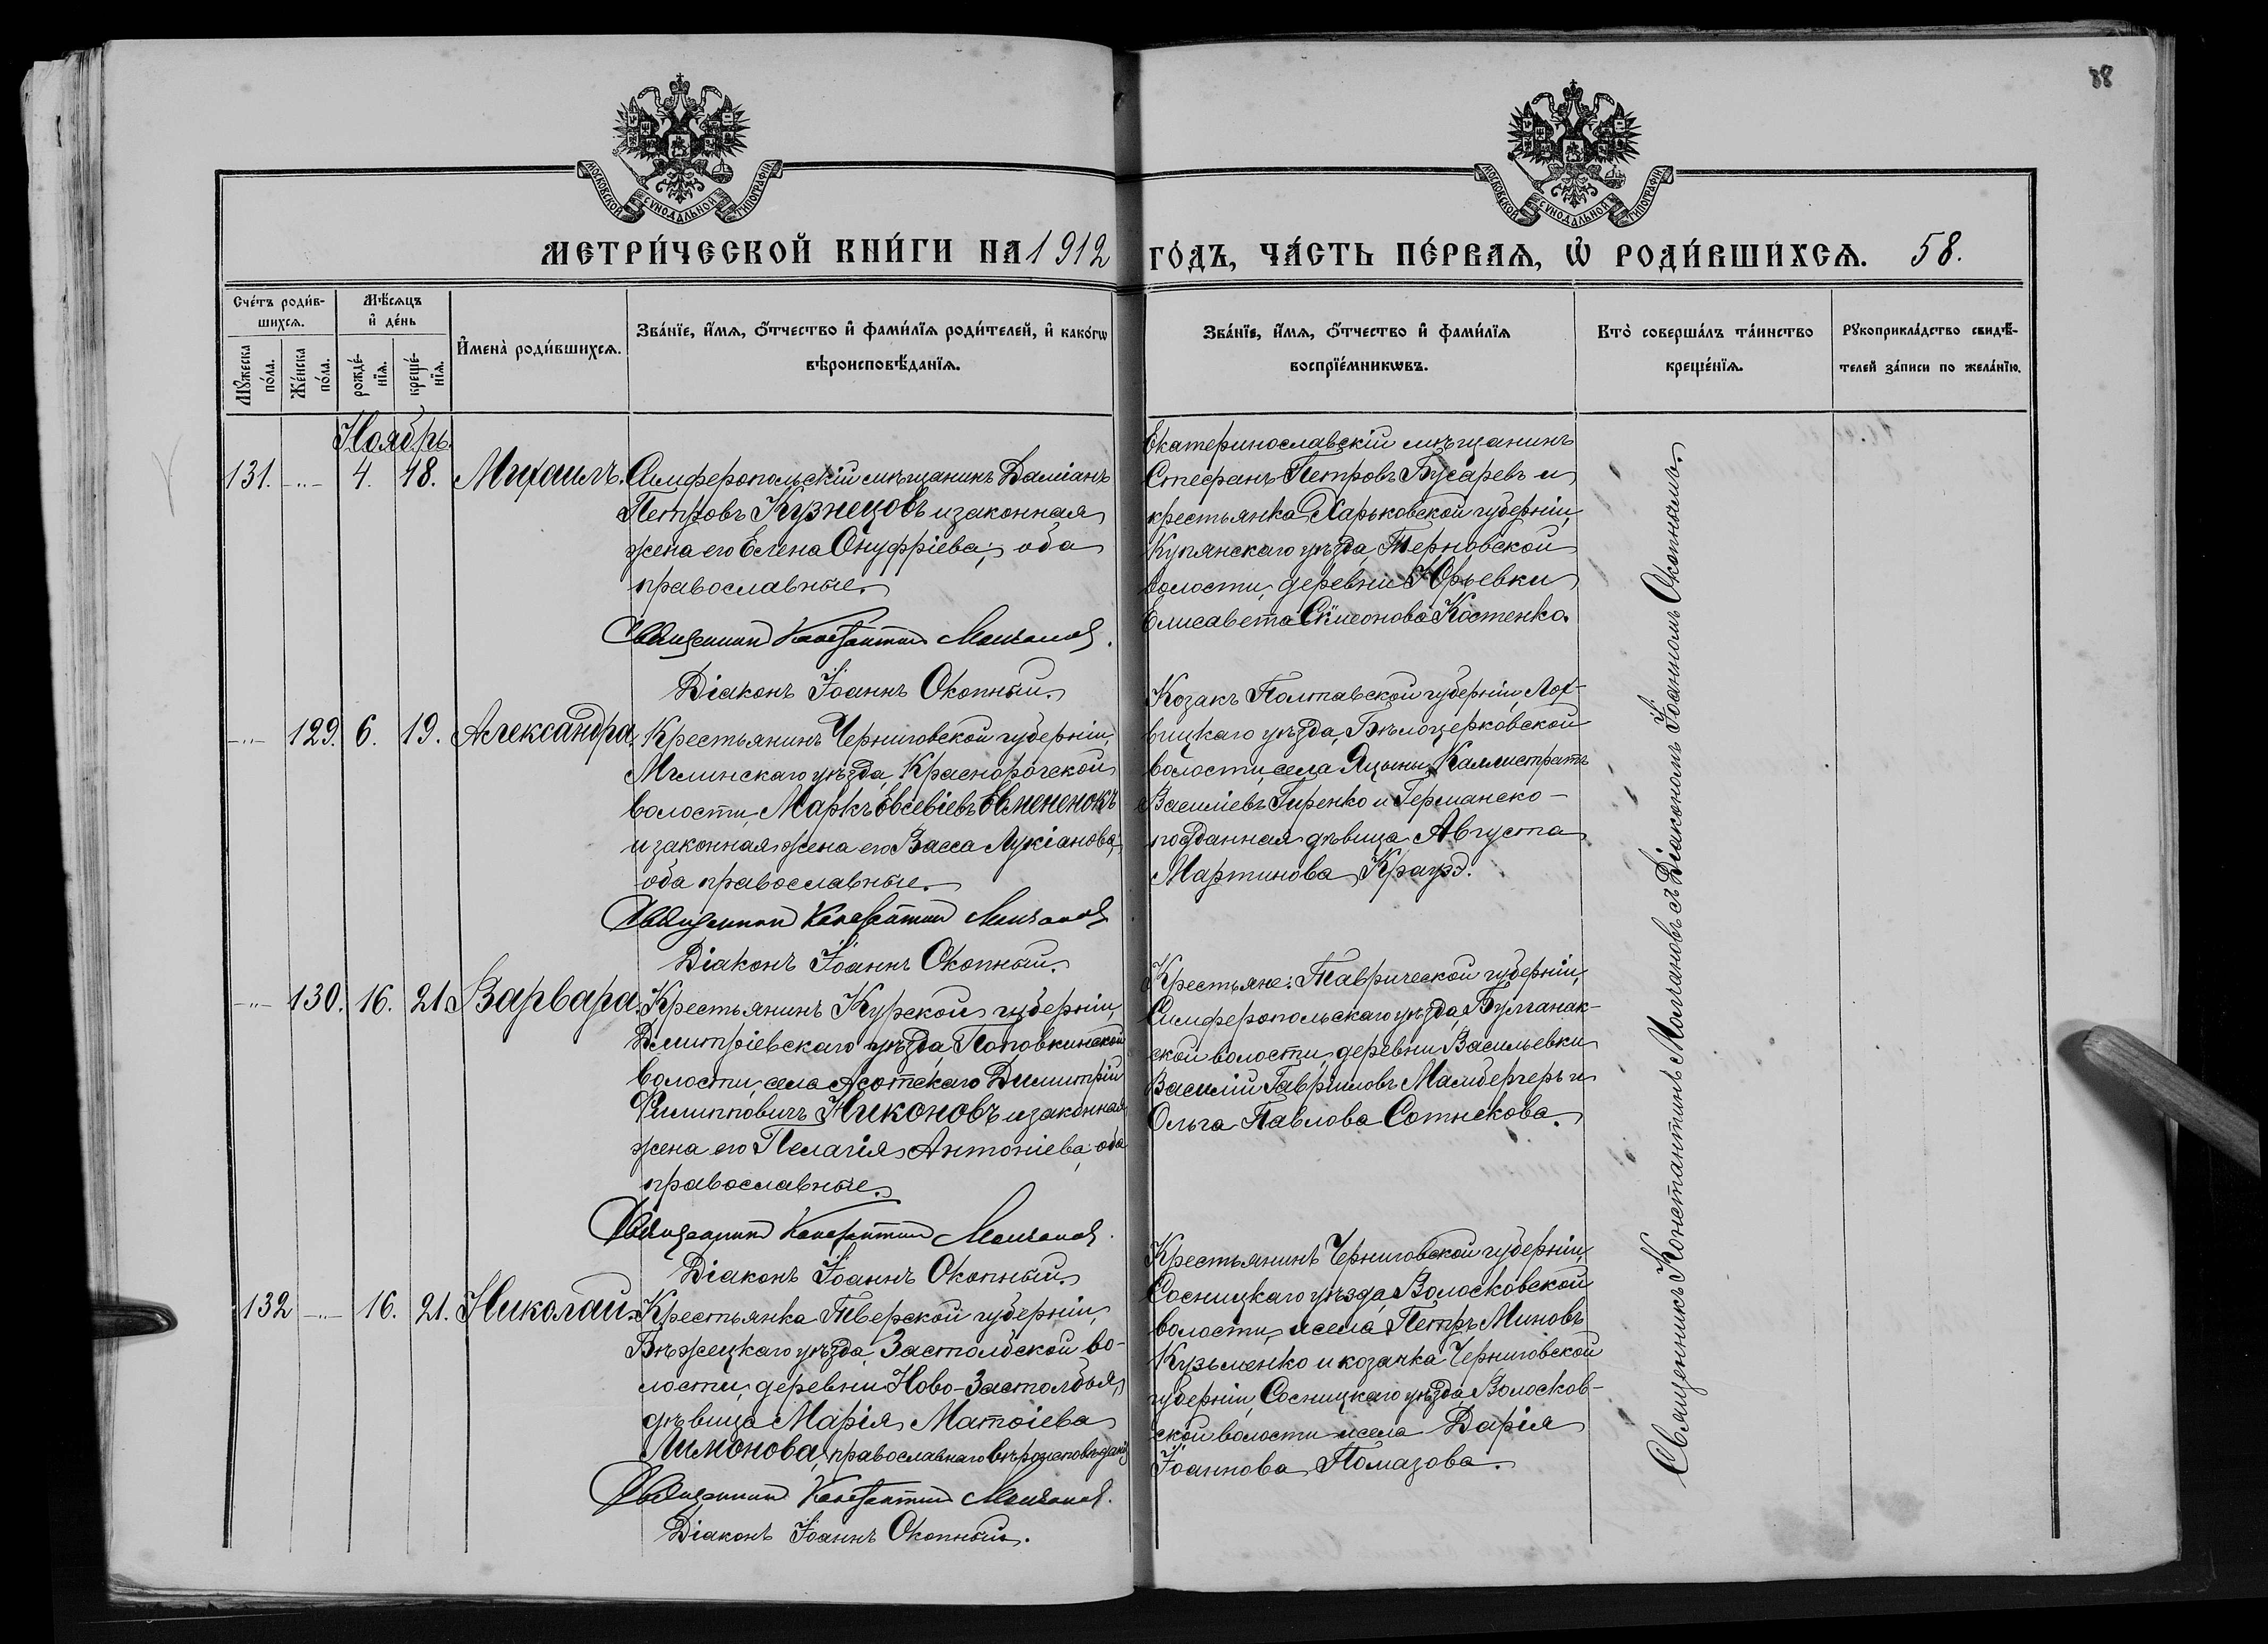 88
МОСКОВСКОЙ СѴНОДАЛЬНОЙ ТИПОГРАФІИ
МОСКОВСКОЙ СѴНОДАЛЬНОЙ ТИПОГРАФІИ
МЕТРИ́ЧЕСКОЙ КНИ́ГИ НА 1912 ГО́ДЪ, ЧА́СТЬ ПЕ́РВАѦ, Ѡ҆ РОДИ́ВШИХСѦ. 58.
Сче́тъ роди́в-
шихсѧ.
Мꙋ́жеска
по́ла.
Же́нска
по́ла.
Мѣ́сѧцъ
и҆ де́нь
рожде́-
нїѧ.
креще́-
нїѧ.
И҆мена̀ роди́вшихсѧ.
Зва́нїе, и҆́мѧ, ѻ҆́тчество и҆ фами́лїѧ роди́телей, и҆ како́гѡ
вѣроисповѣ́данїѧ.
Зва́нїе, и҆́мѧ, ѻ҆́тчество и҆ фами́лїѧ
воспрїе́мникѡвъ.
Кто̀ соверша́лъ та́инство
креще́нїѧ.
Рꙋкоприкла́дство свидѣ́-
телей за́писи по жела́нїю.
Ноябрь.
131. -"- 4. 18. Михаилъ.
Симферопольскій мѣщанинъ Даміанъ
Петровъ Кузнецовъ и законная
жена его Елена Онуфріева; оба
православные.
Священникъ Константинъ Молчановъ.
Діаконъ Іоаннъ Окопный.
Екатеринославскій мѣщанинъ
Стефанъ Петровъ Бусаревъ и
крестьянка Харьковской губерніи,
Купянскаго уѣзда, Терновской
волости, деревни Юрьевки
Елисавета Сѵмеонова Костенко.
-"- 129. 6. 19. Александра.
Крестьянинъ Черниговской губерніи,
Мглинскаго уѣзда, Краснорогской
волости, Маркъ Евсевіевъ Евмененокъ
и законная жена его Васса Лукіанова;
оба православные.
Священникъ Константинъ Молчановъ
Діаконъ Іоаннъ Окопный.
Козакъ Полтавской губерніи, Лох-
вицкаго уѣзда, Бѣлоцерковской
волости, села Яцыны, Каллистратъ
Василіевъ Гиренко и Германско-
подданная дѣвица Августа
Мартинова Краузэ.
-"- 130. 16. 21. Варвара.
Крестьянинъ Курской губерніи,
Дмитріевскаго уѣзда, Поповкинской
волости, села Асотскаго Димитрій
Филипповичъ Никоновъ и законная
жена его Пелагія Антоніева; оба
православные.
Священникъ Константинъ Молчановъ.
Діаконъ Іоаннъ Окопный.
Крестьяне: Таврической губерніи,
Симферопольскаго уѣзда, Булганак-
ской волости, деревни Васильевки
Василій Гавріиловъ Мамбергеръ и
Ольга Павлова Сотнскова.
132 -"- 16. 21. Николай.
Крестьянка Тверской губерніи,
Бѣжецкаго уѣзда, Застолбской во-
лости, деревни Ново-Застолбья,
дѣвица Марія Матѳіева
Лимонова, православнаго вѣроисповѣданія
Священникъ Константинъ Молчановъ.
Діаконъ Іоаннъ Окопный.
Крестьянинъ Черниговской губерніи,
Сосницкаго уѣзда, Волосковской
волости, и села Петръ Миновъ
Кузьменко и козачка Черниговской
губерніи, Сосницкаго уѣзда, Волосков-
ской волости и села Дарія
Іоаннова Помазова.
Священникъ Константинъ Молчановъ съ Діакономъ Іоанномъ Окопнымъ.